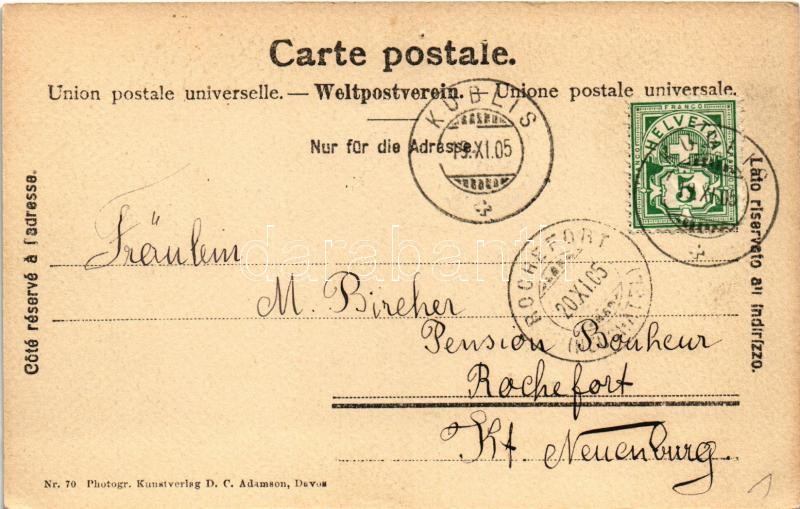 Carte postale.
Union postale universelle. — Weltpostverein. — Unione postale universale.
Nur für die Adresse.
KÜBLIS
19.XI.05
FRANCO
HELVETIA
5
19.XI.05
Côté réservé à l'adresse.
Lato riservato all' indirizzo.
ROCHEFORT
20.XI.05
(NEUCHATEL)
Fräulein
M. Bircher
Pension Bonheur
Rochefort
Kt. Neuenburg.
Nr. 70 Photogr. Kunstverlag D. C. Adamson, Davos
darabanth